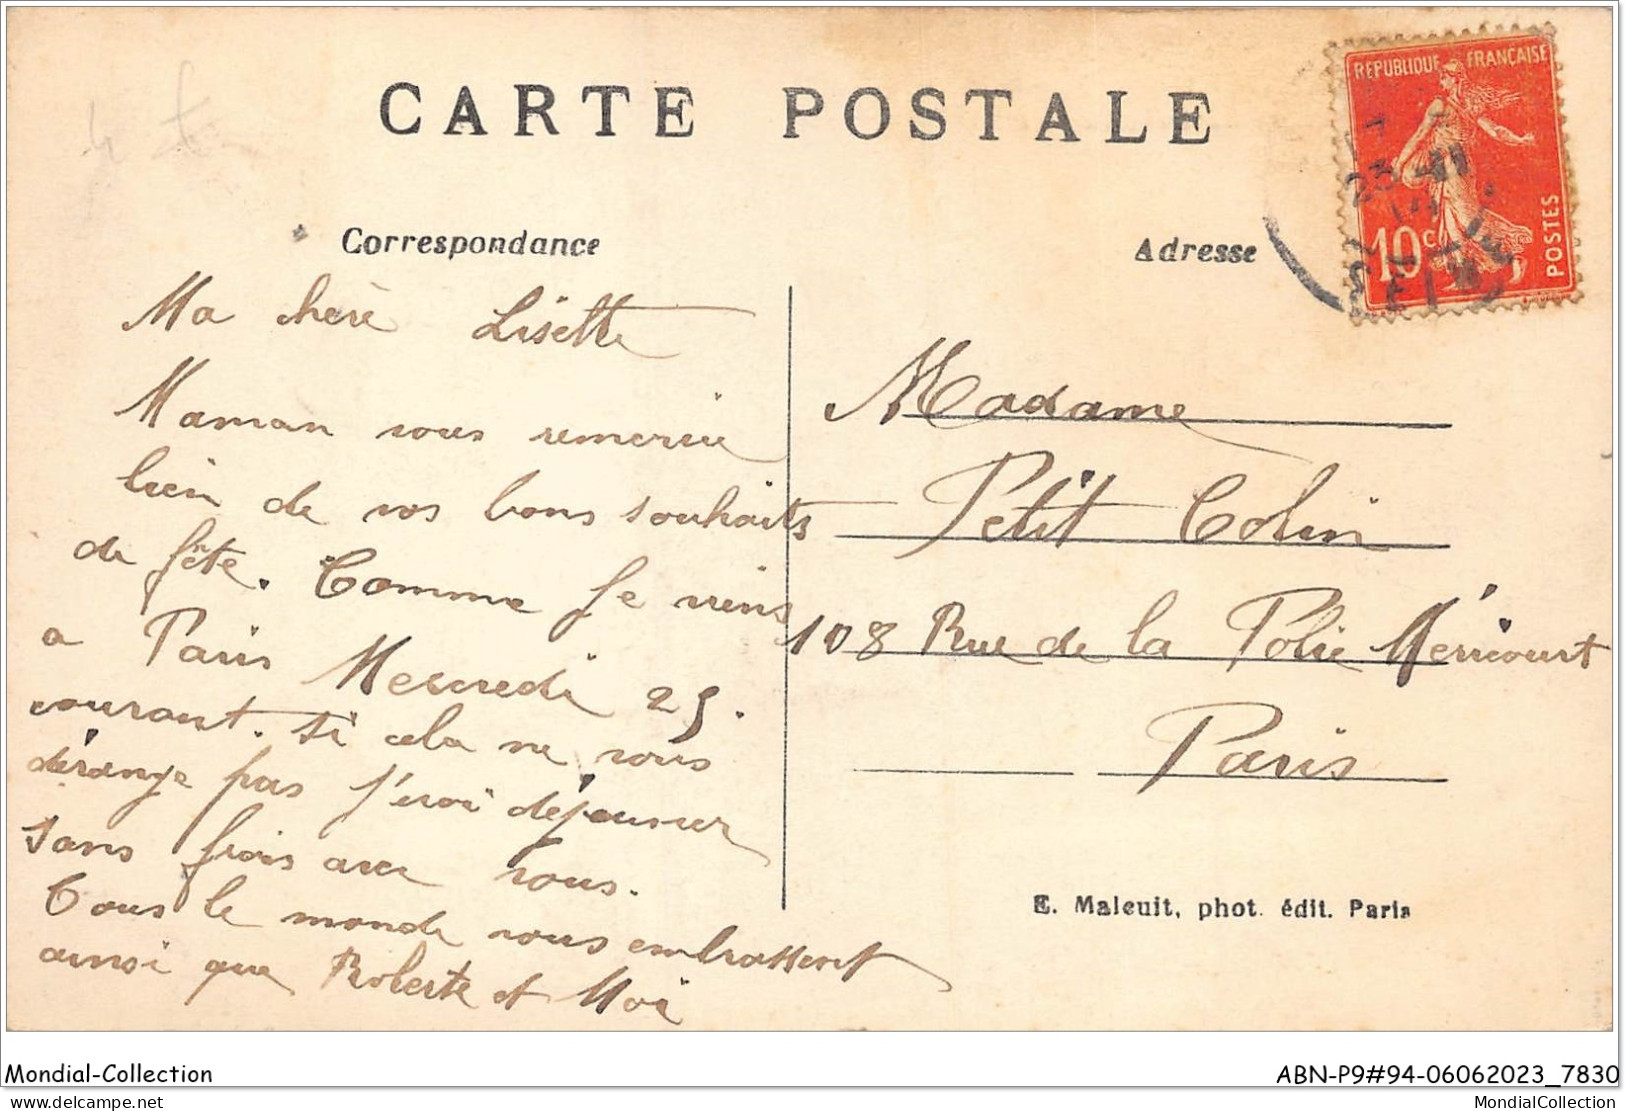 CARTE POSTALE
RÉPUBLIQUE FRANÇAISE
10c
POSTES
Correspondance
Adresse
Ma chère Lisette
Maman vous remercie
bien de vos bons souhaits
de fête. Comme Je viens
a Paris Mercredi 25.
courant. Si cela ne vous
dérange pas j'irai déjeuner
sans frais avec vous.
Tous le monde vous embrassent
ainsi que Roberte et Moi
Madame
Petit Colin
108 Rue de la Folie Méricourt
Paris
E. Maleuit, phot. édit. Paris
Mondial-Collection
ABN-P9#94-06062023_7830
delcampe.net
MondialCollection